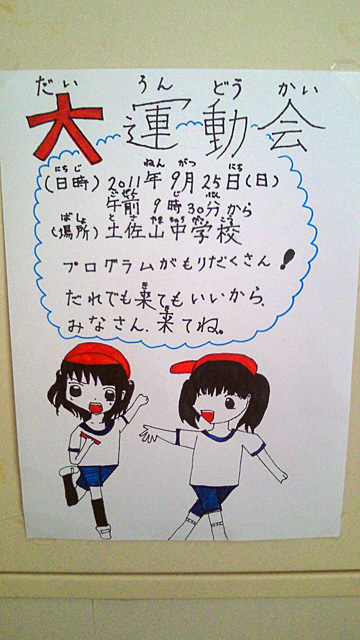 だい うん どう かい
大運動会
にちじ ねん がつ にち
(日時) 2011年 9月 25日(日)
ごぜん じ
午前 9時30分から
ばしょ とさやまちゅうがっこう
(場所) 土佐山中学校
プログラムがもりだくさん!
だれでも来てもいいから、
みなさん、来てね。